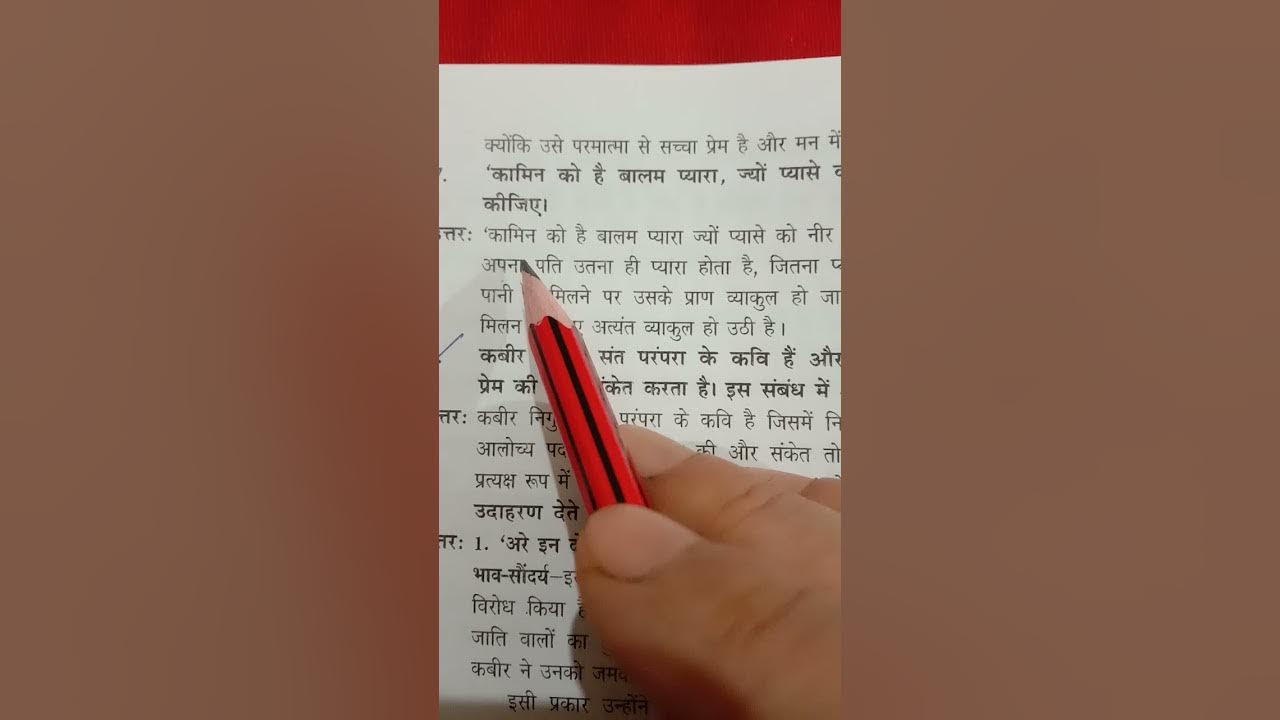 क्योंकि उसे परमात्मा से सच्चा प्रेम है और मन में
'कामिन को है बालम प्यारा, ज्यों प्यासे
कीजिए।
'कामिन को है बालम प्यारा ज्यों प्यासे को नीर
अपना पति उतना ही प्यारा होता है, जितना
पानी मिलने पर उसके प्राण व्याकुल हो
मिलन अत्यंत व्याकुल हो उठी है।
कबीर संत परंपरा के कवि हैं और
प्रेम की करता है। इस संबंध में
कबीर परंपरा के कवि है जिसमें
आलोच्य पद की और संकेत तो
प्रत्यक्ष रूप में
उदाहरण देते
1. 'अरे इन
भाव-सौंदर्य–
विरोध किया
जाति वालों का
कबीर ने उनको
इसी प्रकार उन्होंने